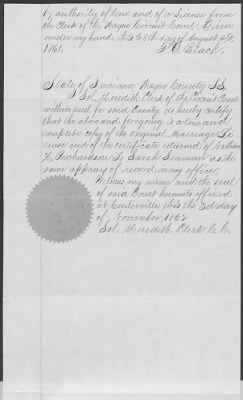 by authority of law and of a License from
the Clerk of the Wayne Circuit Court. Given
under my hand this 28th day of August AD
1861.
State of Indiana Wayne County SS
Sol. Meredith Clerk of the Circuit Court
within and for said County, do hereby certify
that the above and foregoing is a true and
complete copy of the original Marriage Li
cense and of the certificate returned of Nathan
H. Richardson to Sarah as the
same appears of record in my office.
Witness my name and the seal
of said Court hereunto affixed
at Centerville this the 3d day
of November, 1862
Sol. Meredith Clerk C.C.